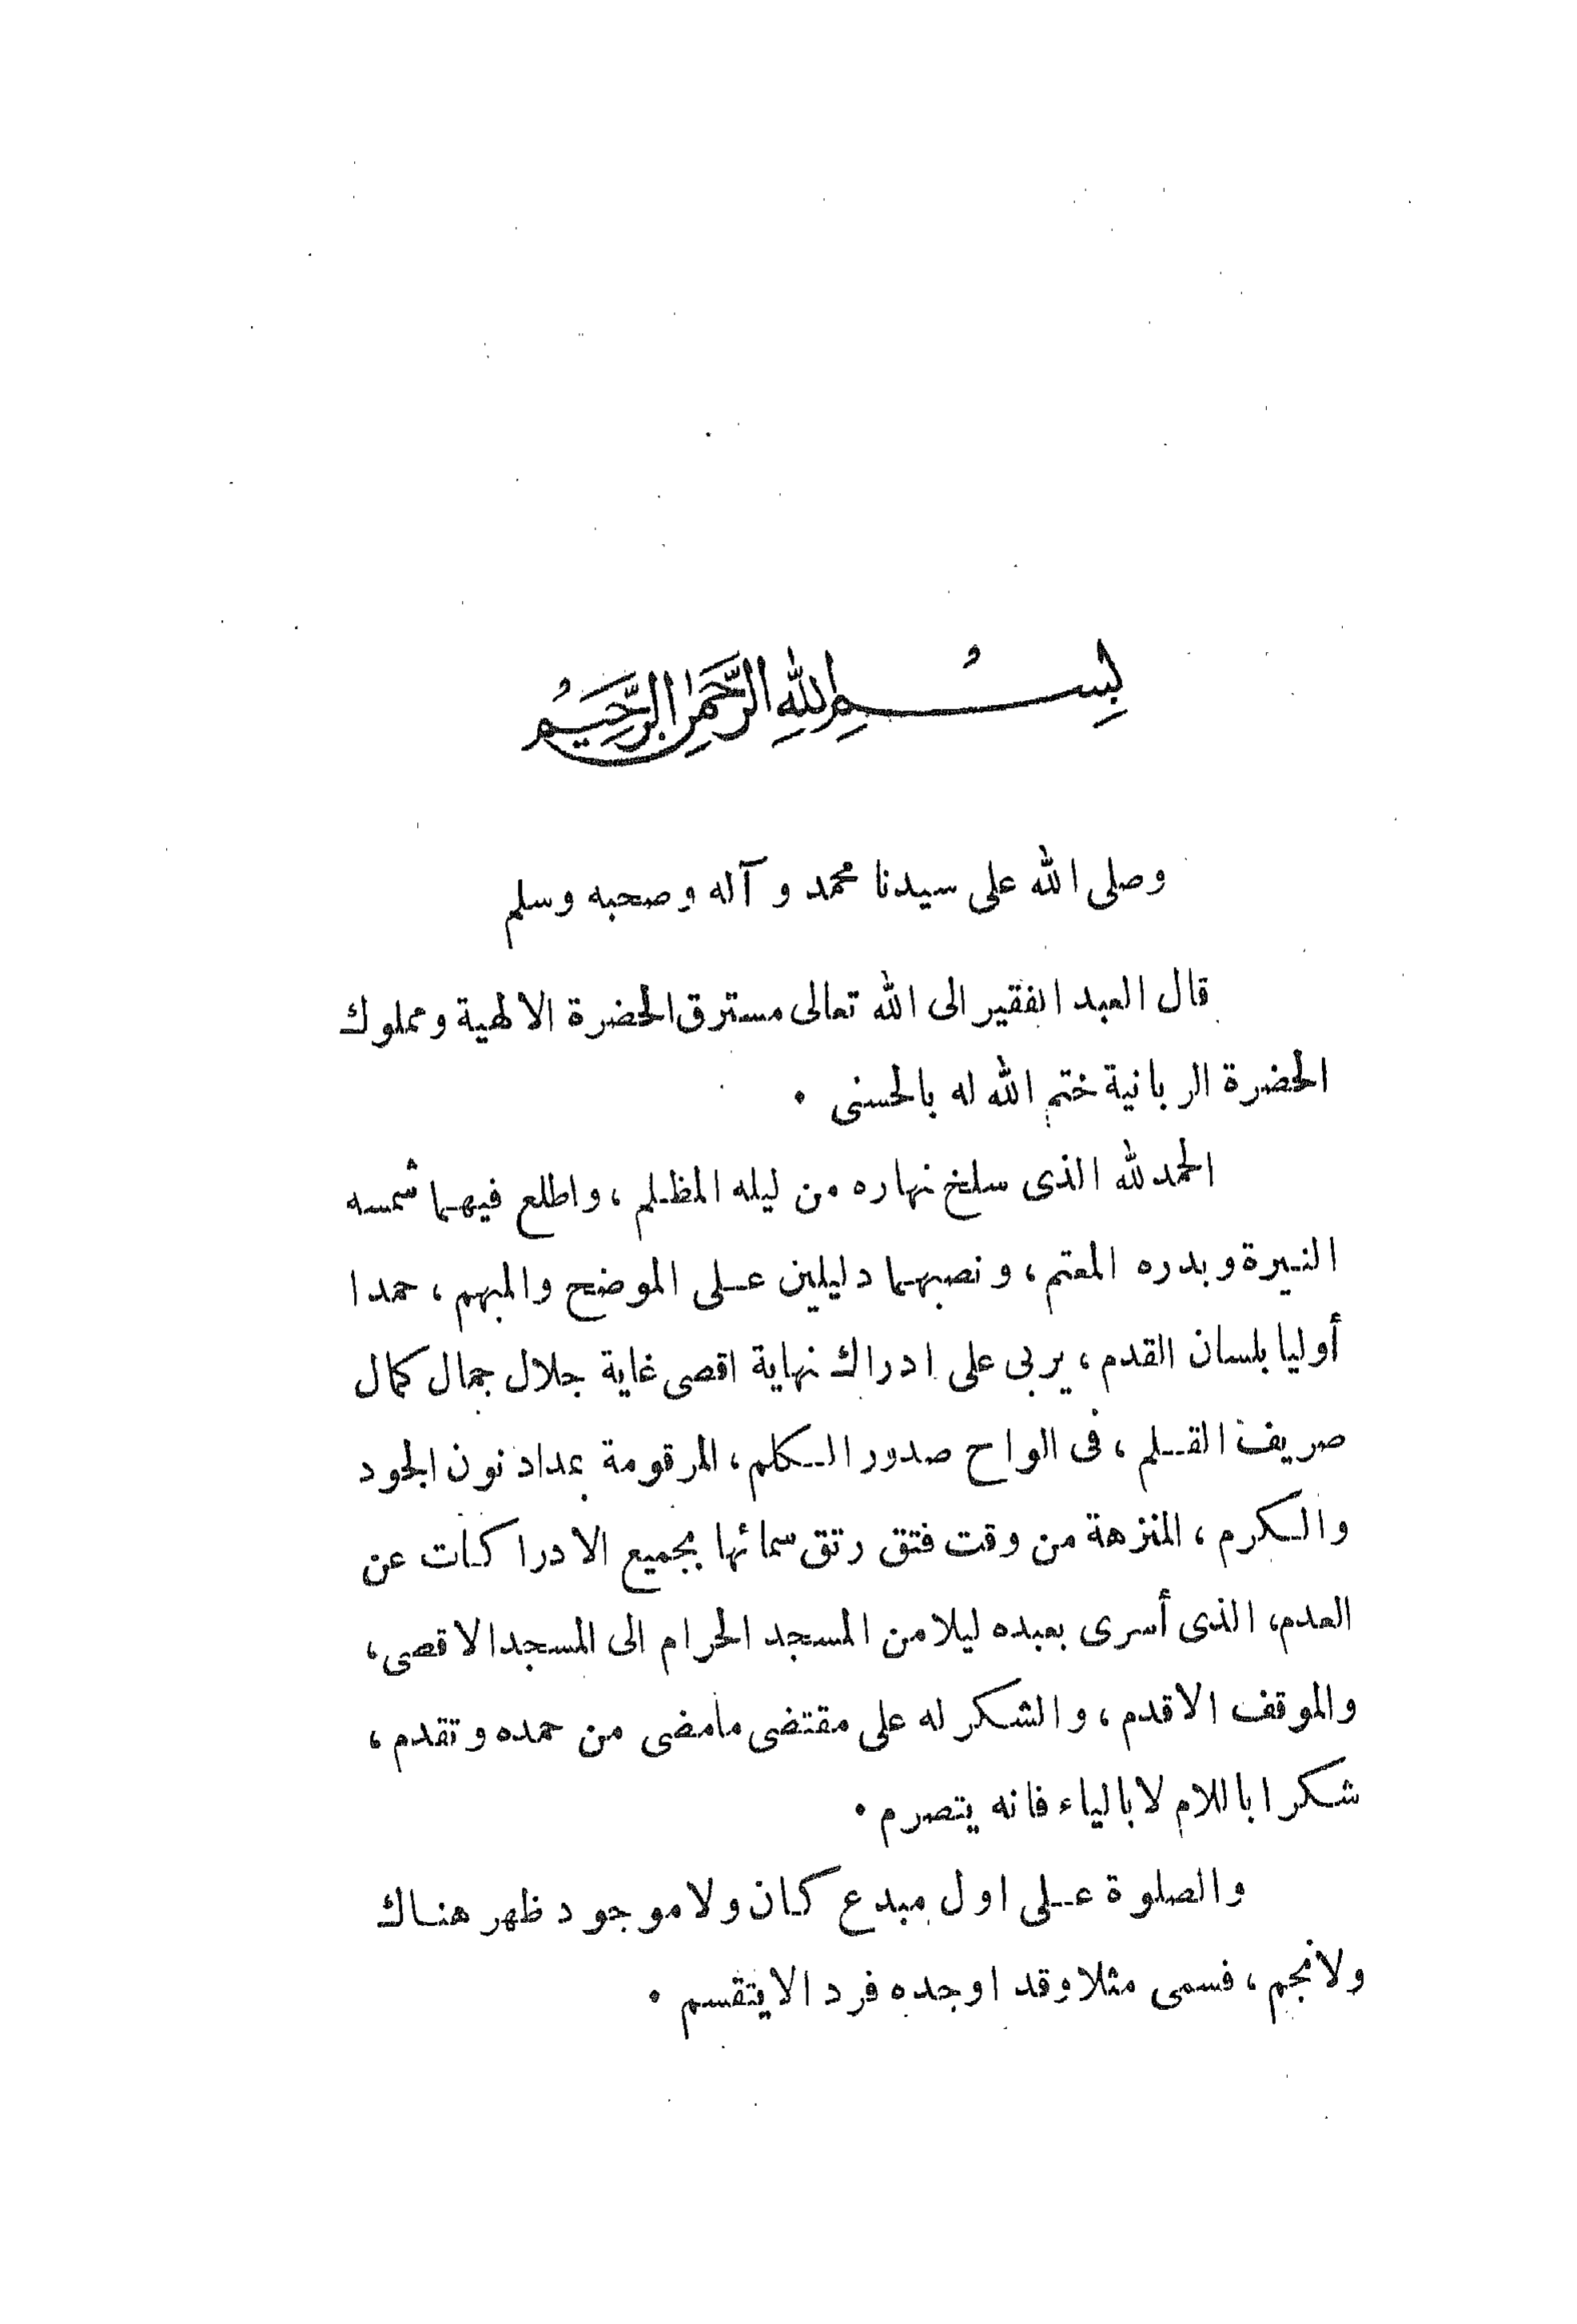 بِسْمُ اللهِ الرَّحْمٰنِ الرَّحِيْمُ
وصلى الله على سيدنا محمد و آله و صحبه وسلم
قال العبد الفقير الى الله تعالى مسترق الحضرة الالهية ومملوك
الحضرة الربانية ختم الله له بالحسنى .
الحمد لله الذى سلخ نهاره من ليله المظلم ، واطلع فيهما شمسه
النيرة وبدره المعتم ، ونصبهما دليلين على الموضح والمبهم ، حمدا
أوليا بلسان القدم ، يربى على ادراك نهاية اقصى غاية جلال جمال كمال
صريف القلم ، فى الواح صدور الكلم ، المرقومة بمداد نون الجود
والكرم ، المنزهة من وقت فتق رتق سمائها بجميع الادراكات عن
العدم، الذى أسرى بعبده ليلا من المسجد الحرام الى المسجد الاقصى ،
والموقف الاقدم ، والشكر له على مقتضى مامضى من حمده وتقدم ،
شكرا باللام لا بالياء فانه يتصرم .
والصلوة على اول مبدع كان ولا موجود ظهر هناك
ولا نجم ، فسمى مثلا وقد اوجده فردا لايتقسم .